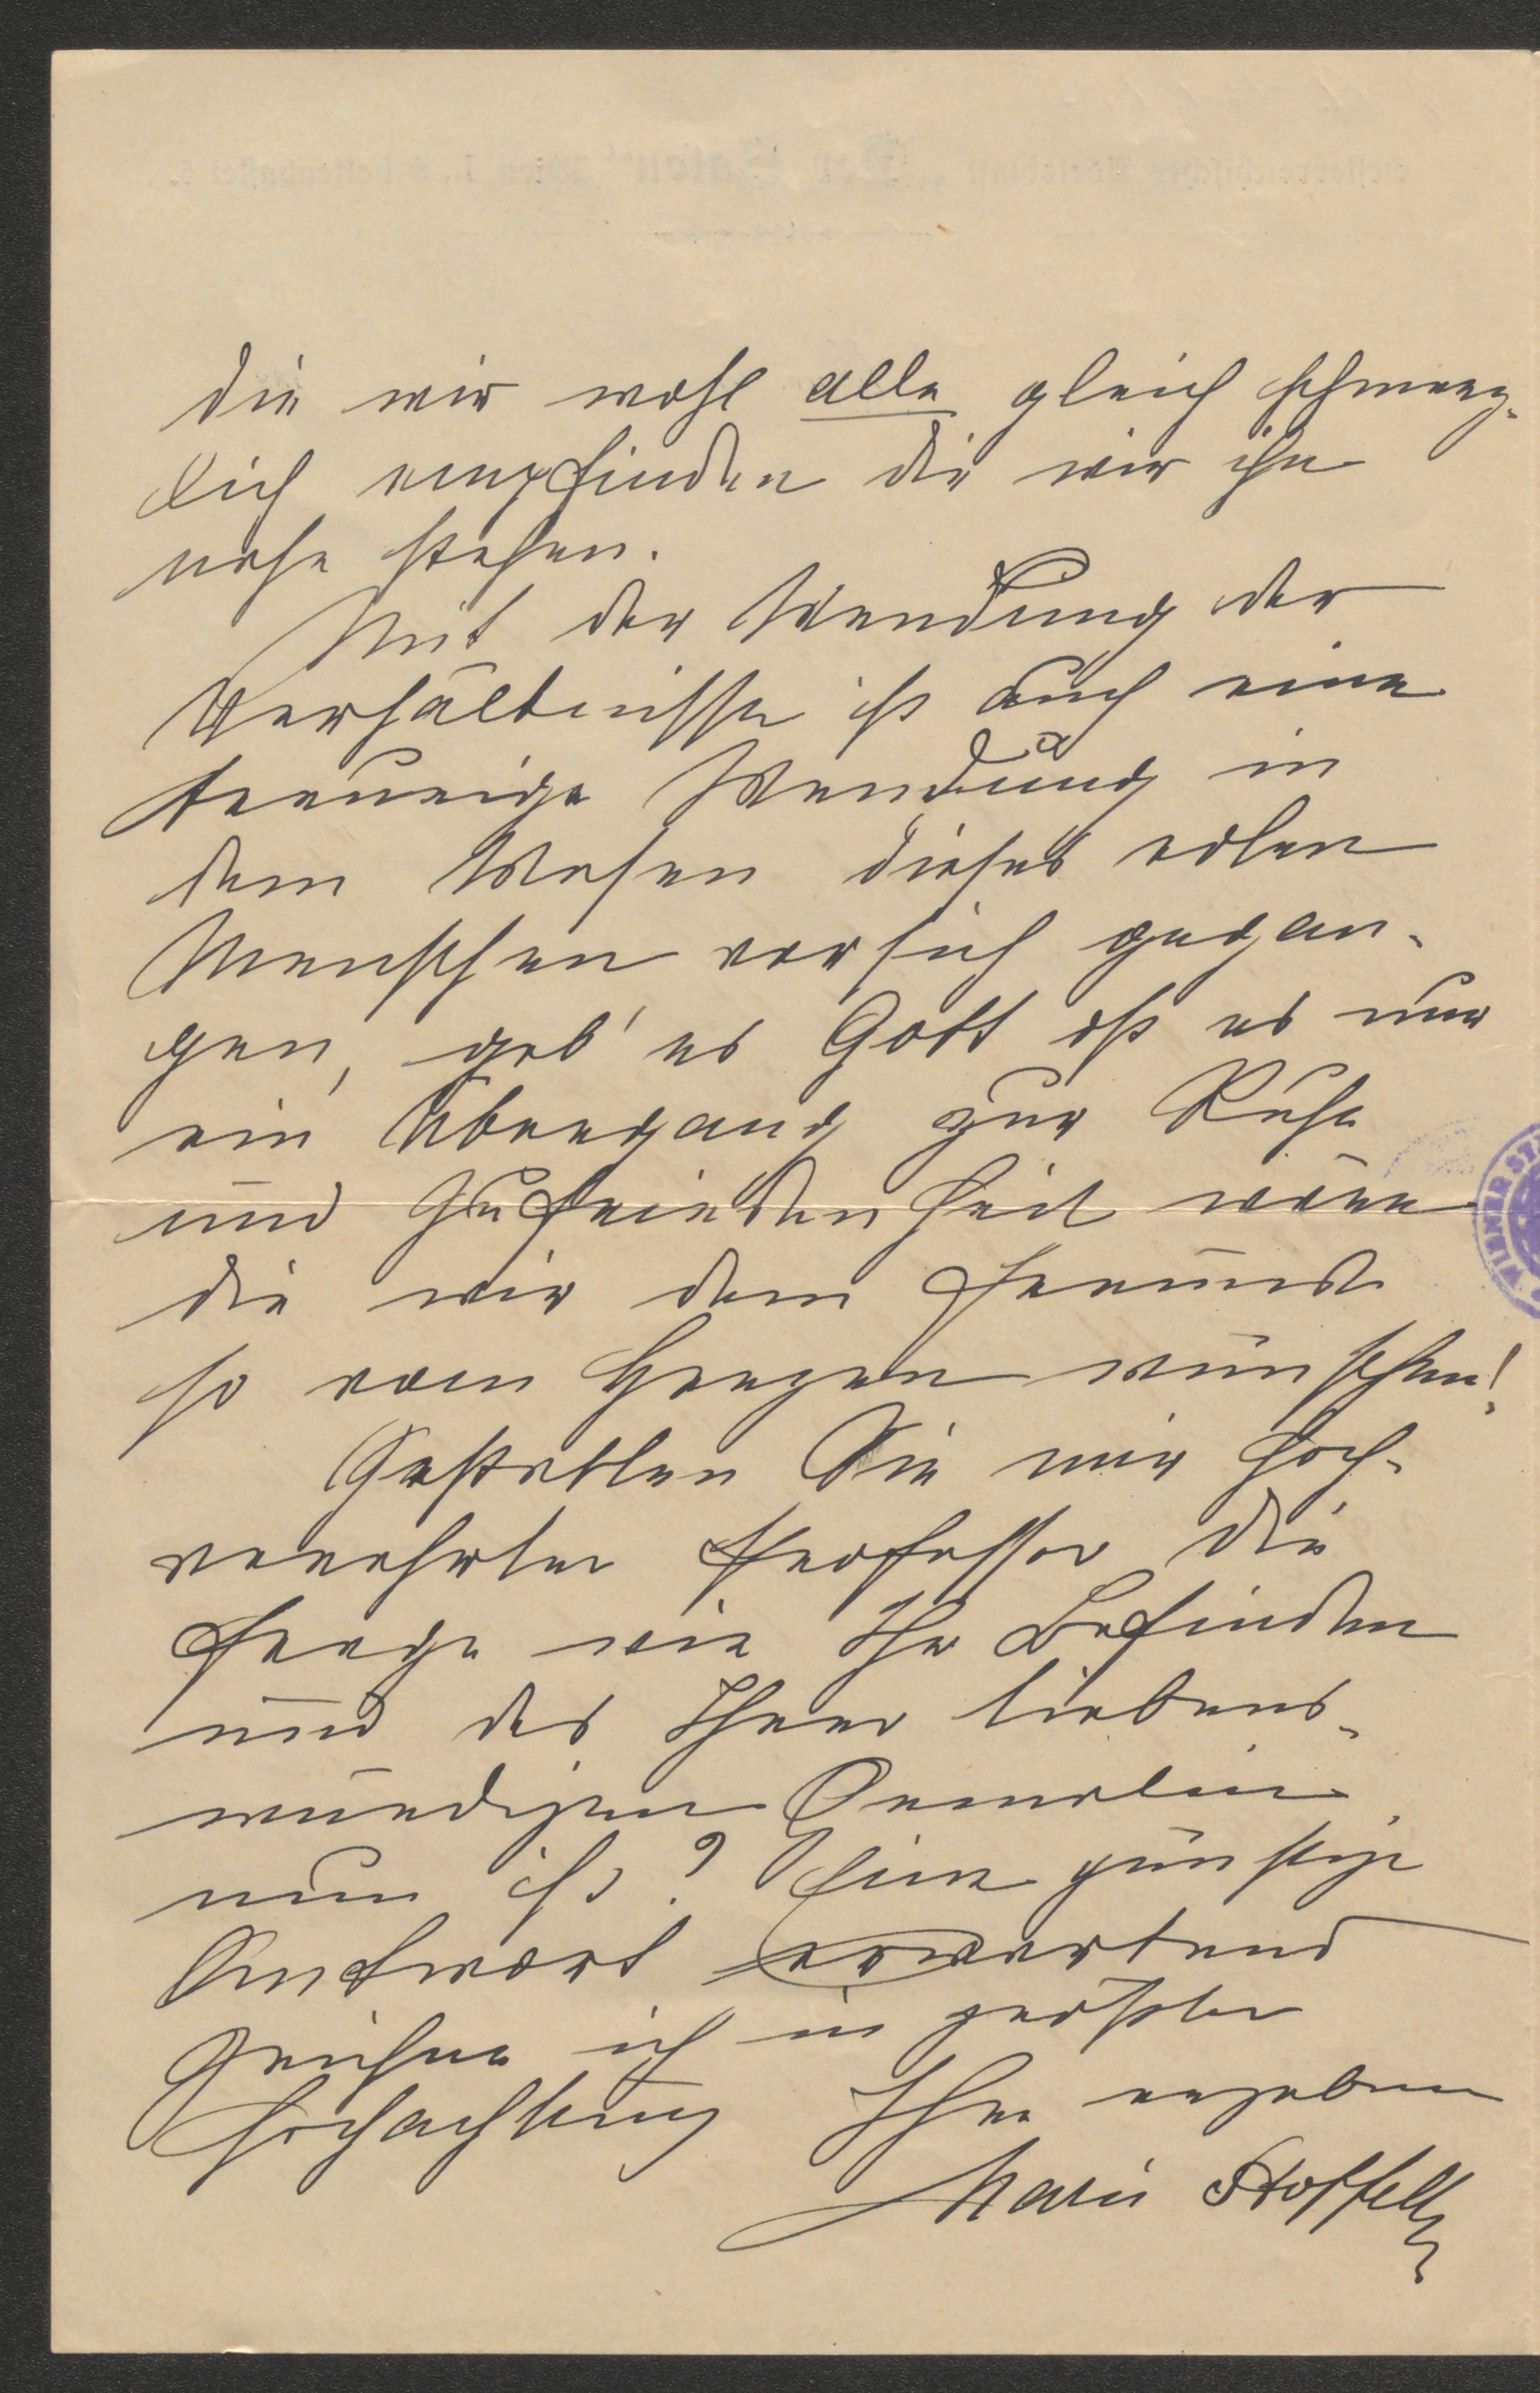 die wir wohl alle gleich schmerz-
lich empfinden die wir ihm
nahe stehen.
Mit der Wendung der
Verhältnisse ist auch eine
traurige Wendung in
dem Wesen dieses edlen
Menschen vor sich gegan-
gen, geb' es Gott es nur
ein Übergang zur Ruhe
und Zufriedenheit wäre
die wir dem Freunde
so vom Herzen wünschen!
Gestatten Sie mir hoch-
verehrter Professor die
Frage wie Ihr Befinden
und das Ihrer liebens-
würdigen Gemalin
nun ist? Eine günstige
Antwort erwartend
zeichne ich in größter
Hochachtung Ihre ergebene
Marie Stoffella
WIENER ST